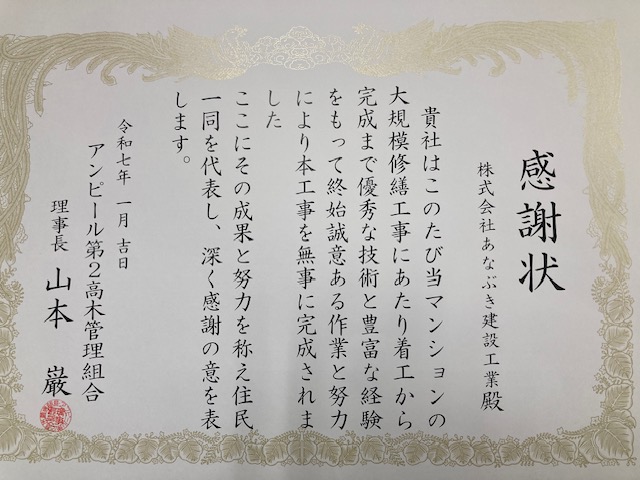 感謝状
株式会社あなぶき建設工業殿
貴社はこのたび当マンションの
大規模修繕工事にあたり着工から
完成まで優秀な技術と豊富な経験
をもって終始誠意ある作業と努力
により本工事を無事に完成されま
した
ここにその成果と努力を称え住民
一同を代表し、深く感謝の意を表
します。
令和七年 一月 吉日
アンピール第2高木管理組合
理事長 山本 巌